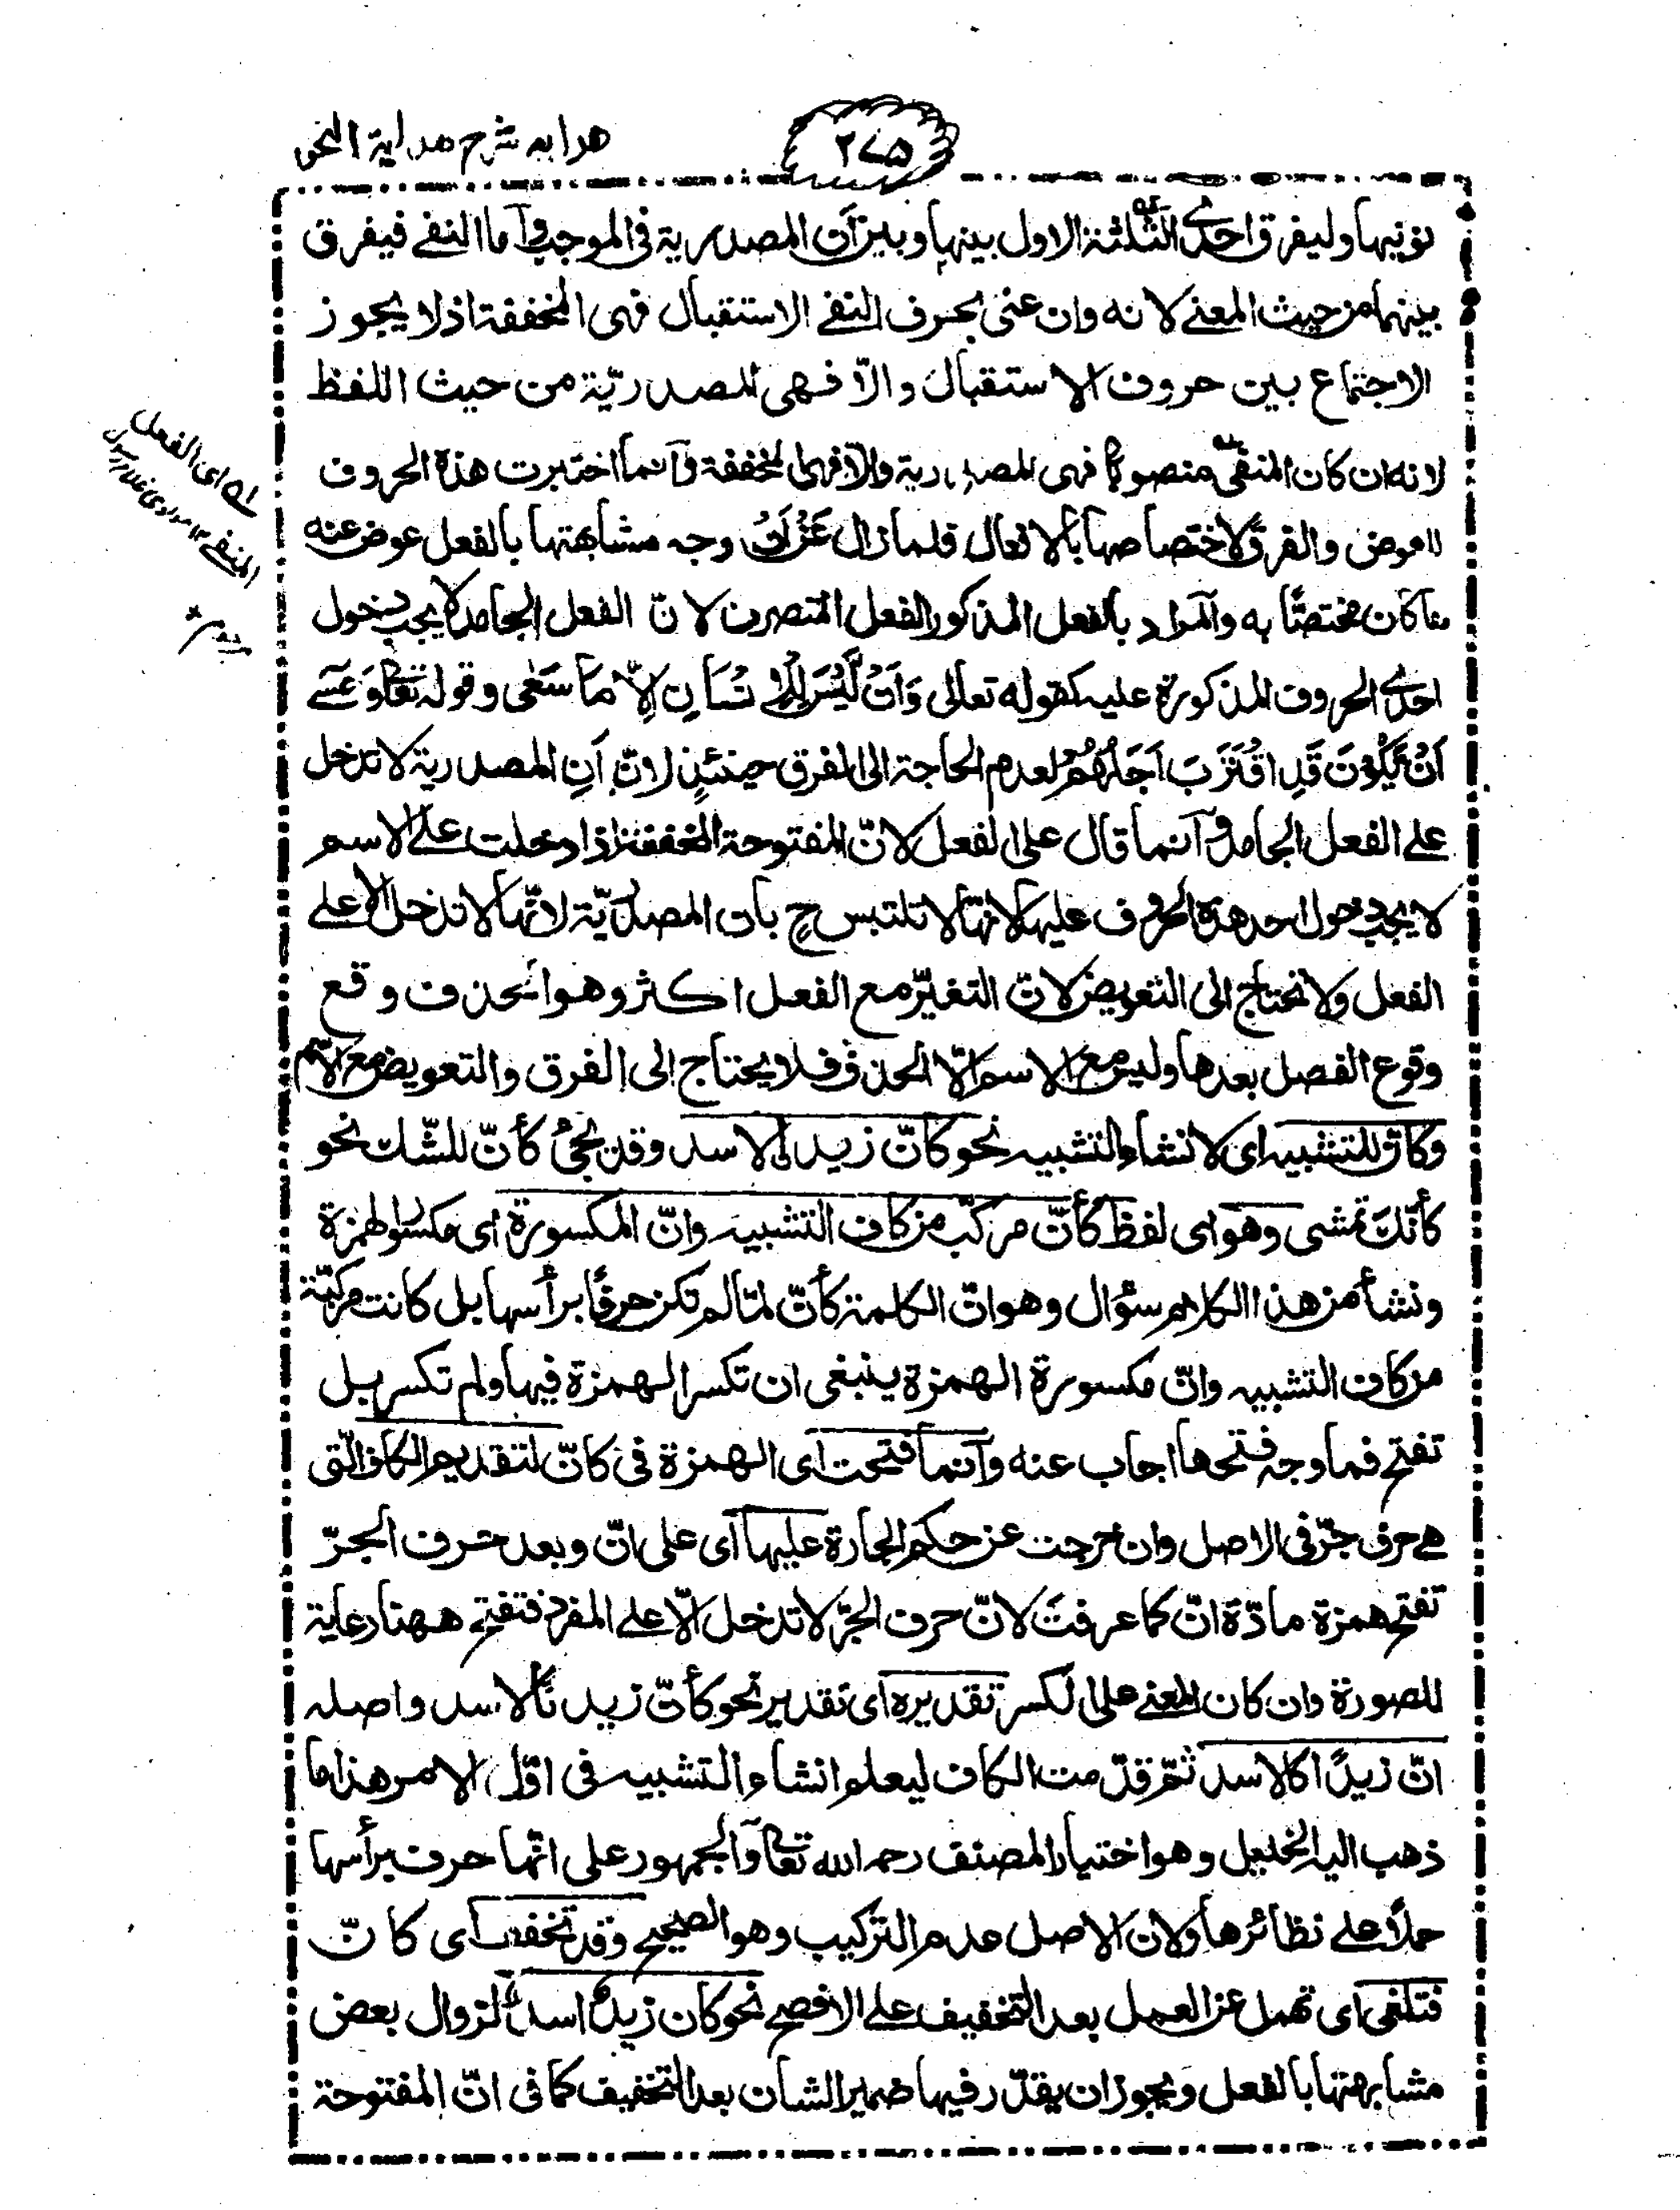 ٢٧٥
هدايه شرح هداية النحو
نونيها وليفرق احدى الثلثة الاول بينها وبين أن المصدرية فى الموجب وآما النفے فيفرق
بينهما من حيث المعنے لانه وان عنى بحرف النفے الاستقبال فهى المخففة اذ لا يجوز
الاجتماع بين حروف الاستقبال والّا فهى المصدريّة من حيث اللفظ
لانه ان كان المنفىّ منصوبا فهى المصدرية والّا فهى المخففة وآنما اختيرت هذه الحروف
للعوض والفرق لاختصاصها بالافعال فلما زال عَنْ اَنْ وجه مشابهتها بالفعل عوض عنه
ما كان مختصًّا به وآلمراد بالفعل المذكور الفعل المتصرف لانّ الفعل الجامد لا يجب دخول
احدى الحروف المذكورة عليه كقوله تعالى وَاَنْ لَّيْسَ لِلْاِنْسَانِ اِلَّا مَا سَعٰى وقوله تعا وَعَسٰے
اَنْ يَّكُوْنَ قَدِ اقْتَرَبَ اَجَلُهُمْ لعدم الحاجة الى الفرق حينئذٍ لانّ اَنِ المصدرية لا تدخل
علے الفعل الجامد وآنما قال على الفعل لانّ المفتوحة المخففة اذا دخلت علے الاسم
لا يجب دخول احد هذه الحروف عليه لانها لا تلتبس ح بان المصدريّة لانّها لا تدخل الا على
الفعل ولا تحتاج الى التعويض لانّ التغيّر مع الفعل اكثر وهو الحذف وقع
وقوع الفصل بعدها وليس مع الاسم الّا الحذف فلا يحتاج الى الفرق والتعويض مع الاسم
وكانّ للتشبيه اى لانشاء التشبيه نحو كانّ زيد الاسد وقد يجئ كأنّ للشّك نحو
كأنّك تمشى وهو اى لفظ كأنّ مركّب من كاف التشبيه وانّ المكسورة اى مكسور الهمزة
ونشأ من هذا الكلام سؤال وهو انّ الكلمة كأنّ لمّا لم تكن حرفًا برأسها بل كانت مركّبة
من كاف التشبيه وانّ مكسورة الهمزة ينبغى ان تكسر الهمزة فيها ولم تكسر بل
تفتح فما وجه فتحها اجاب عنه وآنما فتحت اى الهمزة فى كانّ لتقديم الكاف الّتى
هے حرف جرّ فى الاصل وان خرجت عن حكم الجارة عليها اى على انّ وبعد حرف الجرّ
تفتح همزة مادّة انّ كما عرفت لانّ حرف الجرّ لا تدخل الّا علے المفرد فتفتح ههنا رعاية
للصورة وان كان المعنے على الكسر تقديره اى تقدير نحو كأنّ زيدنا الاسد واصله
انّ زيدًا كالاسد ثمّ قدّمت الكاف ليعلم انشاء التشبيه فى اوّل الامر هذا ما
ذهب اليه الخليل وهو اختيار المصنف رحمه الله تعا وآلجمهور على انّها حرف برأسها
حملًا على نظائرها ولان الاصل عدم التركيب وهو الصحيح وقد تخفف اى كانّ
فتلغى اى تهمل عن العمل بعد التخفيف علے الافصح نحو كان زيدٌ اسدٌ لزوال بعض
مشابهتها بالفعل ويجوز ان يقدّر فيها ضمير الشان بعد التخفيف كما فى انّ المفتوحة
له اى الفعل
المنفے ١٢ مولوى غلام رسول